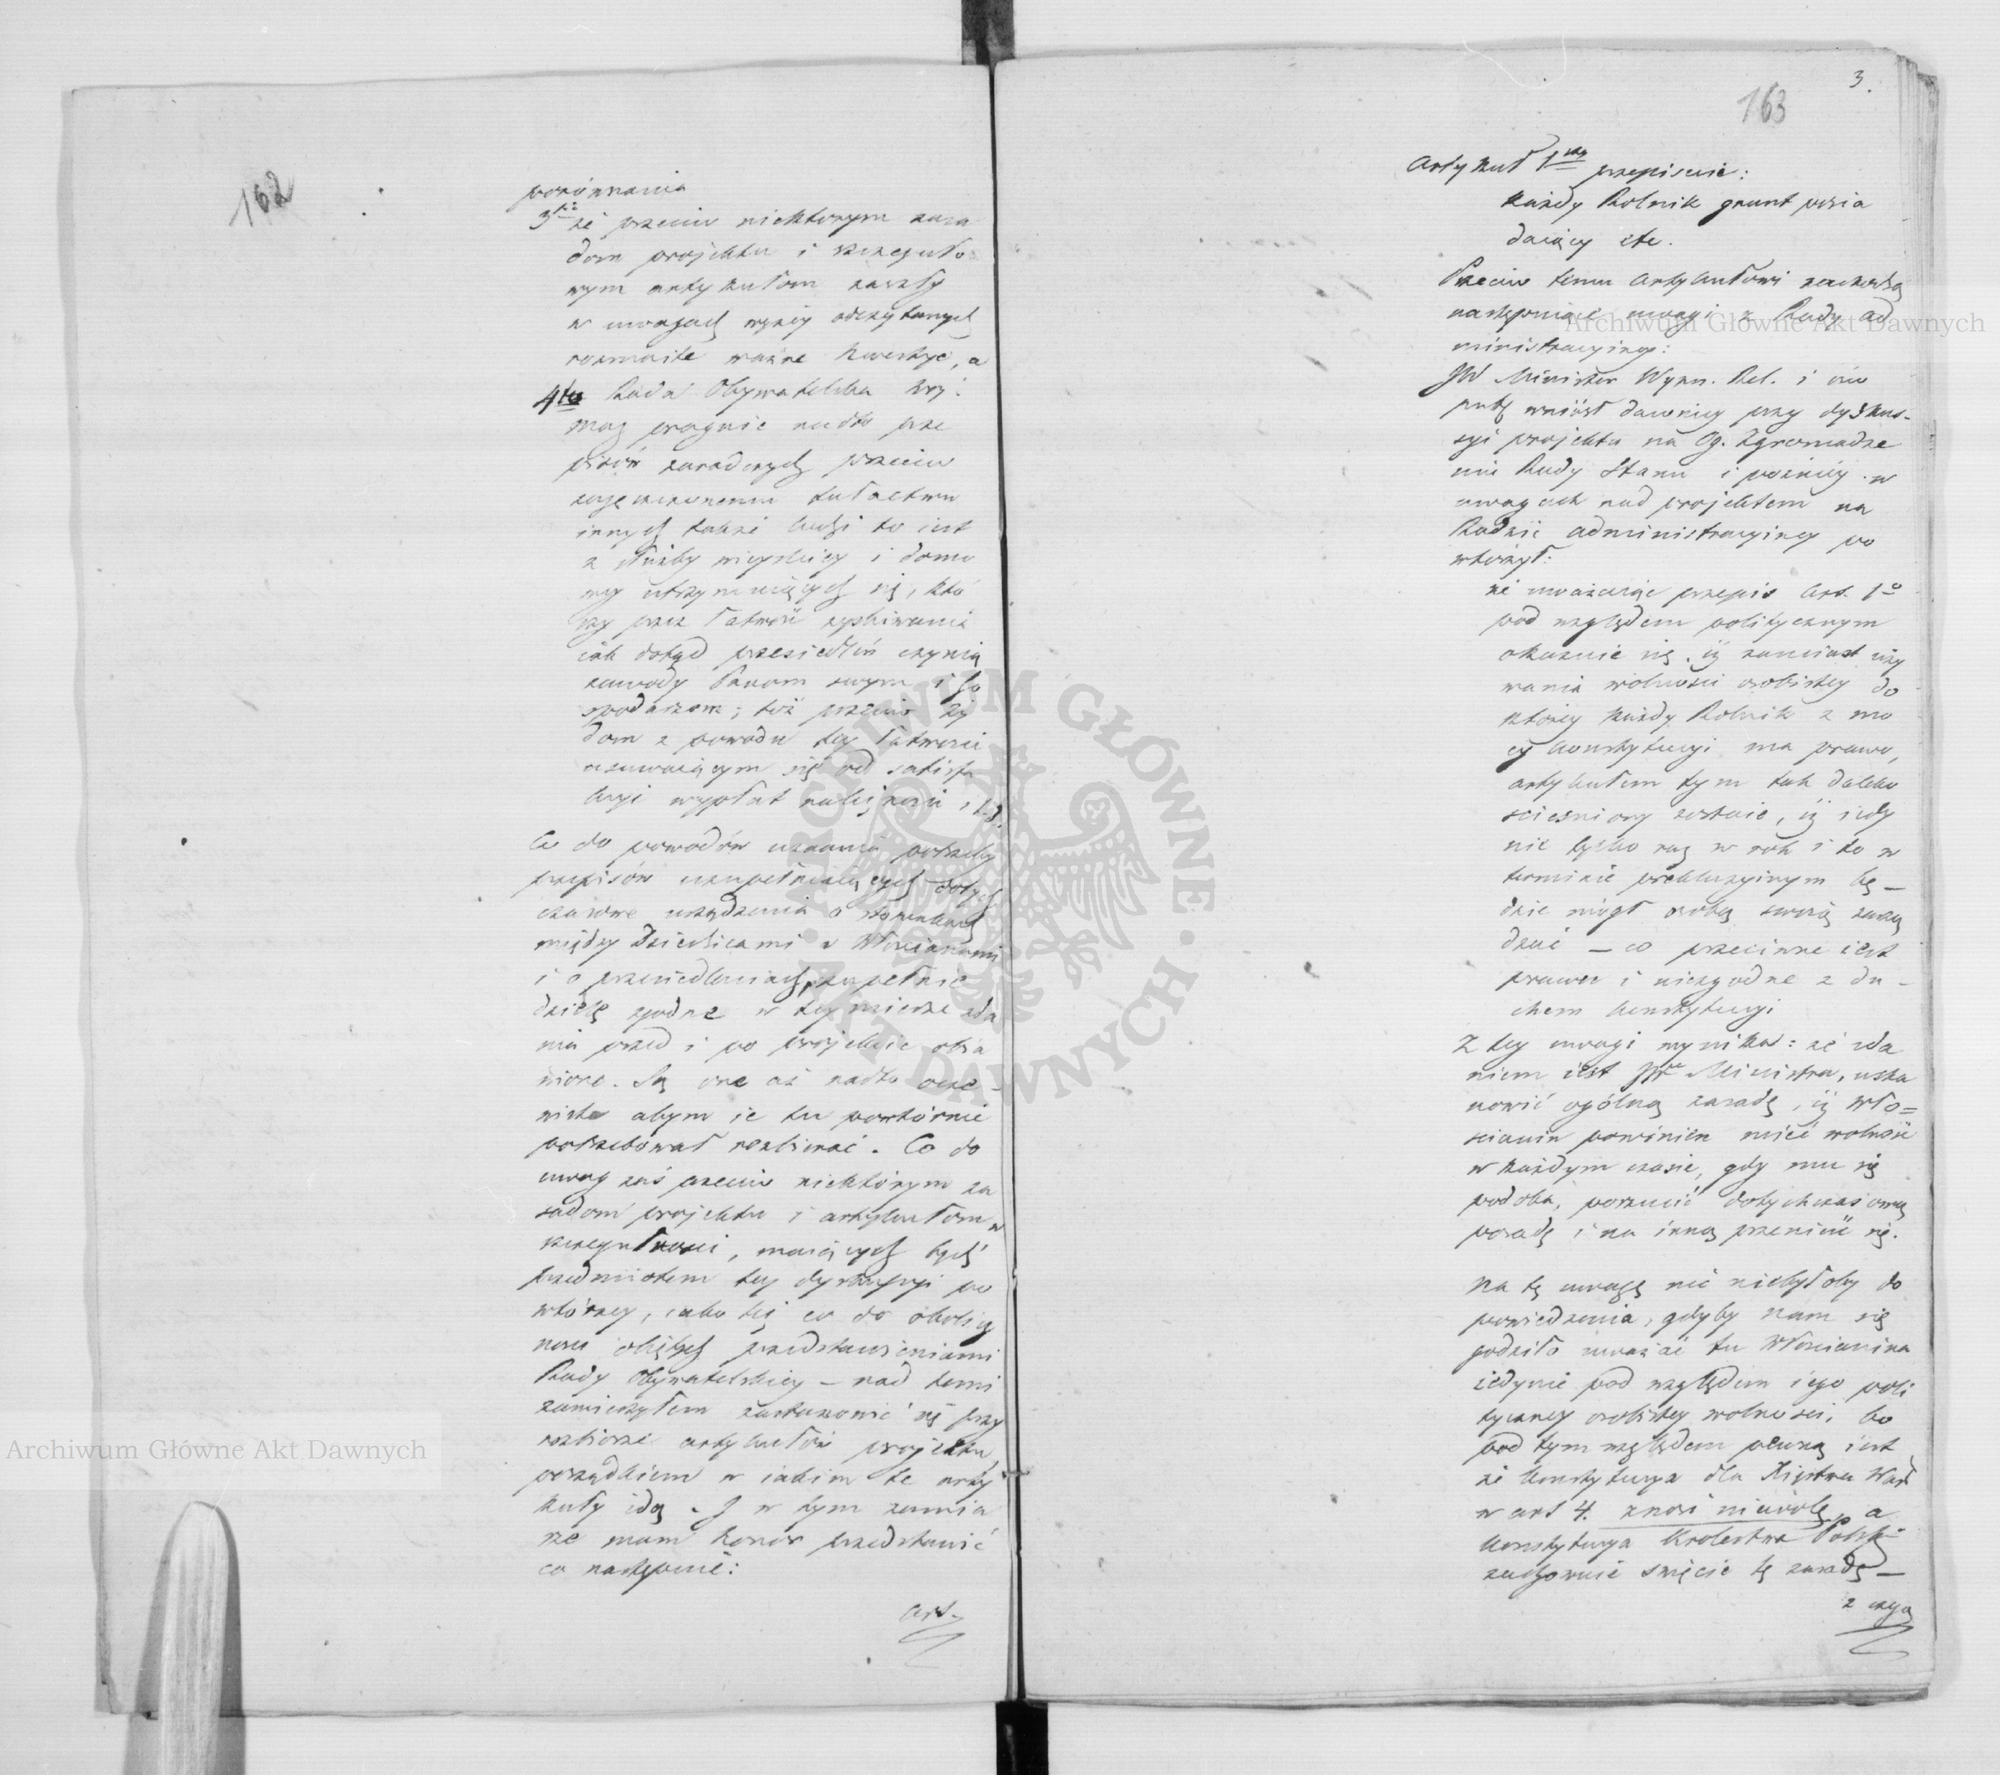 162
porównania
3cie że przeciw niektorym zasa
dom projektu i szczeguło
wym artykułom zaszły
w uwagach wyżey odczytanych
rozmaite ważne kwestye, a
4to Rada Obywatelska Woj:
maz pragnie nadto prze
pisów zaradczych przeciw
zagęszczonemu tułactwu
innych także ludzi to iest
z służby wieyskiey i domo
wey utrzymuiących się, któ
rzy przez łatwość zyskiwania
iak dotąd przesiedleń czynią
zawody Panom swym i Go
spodarzom; toż przeciw Ży
dom z powodu tey łatwości
usuwaiącym się od satisfa
kcyi wypłat należności, i t. d.
Co do powodów uznania potrzeby
przepisów uzupełniaiących dotych
czasowe urządzenia o stosunkach
między Dziedzicami a Włościanami
i o przesiedleniach, zupełnie
dzielę zgodne w tey mierze zda
nia przed i po projekcie obia
wione. Są one aż nadto ocze-
wiste abym ie tu powtórnie
potrzebował rozbierać. Co do
uwag zaś przeciw niektórym za
sadom projektu i artykułom w
szczegułności, maiących bydź
przedmiotem tey dyskussyi po
wtórney, iako też co do okolicz
ności obiętych przedstawieniami
Rady Obywatelskiey – nad temi
zamierzyłem zastanowić się przy
rozbiorze artykułów projektu,
porządkiem w iakim te arty
kuły idą. I w tym zamia
rze mam honor przedstawić
co następuie:
Art.
3.
163
Artykuł 1szy przepisuie:
Każdy Rolnik grunt posia
daiący etc.
Przeciw temu Artykułowi zachodzą
następuiące uwagi z Rady Ad
ministracyiney:
JW Minister Wyzn. Rel. i Ośw
publ wniósł dawniey przy dyskus-
syi projektu na Og. Zgromadze
niu Rady Stanu i poźniey w
uwagach nad projektem na
Radzie administracyiney po
wtórzył:
że uważaiąc przepis Art. 1o
pod względem politycznym
okazuie się, iż zamiast uży
wania wolności osobistey do
którey każdy Rolnik z mo
cy konstytucyi ma prawo,
artykułem tym tak daleko
sciesniony zostaie, iż iedy
nie tylko raz w rok i to w
terminie prekluzyinym bę–
dzie mógł osobą swoią zarzą
dzać – co przeciwne iest
prawu i niezgodne z du-
chem konstytucyi
Z tey uwagi wynika: że zda
niem iest JWo Ministra, usta
nowić ogólną zasadę, iż Wło=
scianin powinien mieć wolność
w każdym czasie, gdy mu się
podoba, porzucić dotychczasową
posadę i na inną przenieść się.
Na tę uwagę nic niebyłoby do
powiedzenia, gdyby nam się
godziło uważać tu Włościanina
iedynie pod względem iego poli
tyczney osobistey wolności, bo
pod tym względem pewną iest
że konstytucya dla Xięstwa War
w art 4. znosi niewolę, a
konstytucya Krolestwa Polsk:
zachowuie swięcie tę zasadę –
z czego
Archiwum Główne Akt Dawnych
Archiwum Główne Akt Dawnych
ARCHIWUM GŁÓWNE · AKT DAWNYCH ·